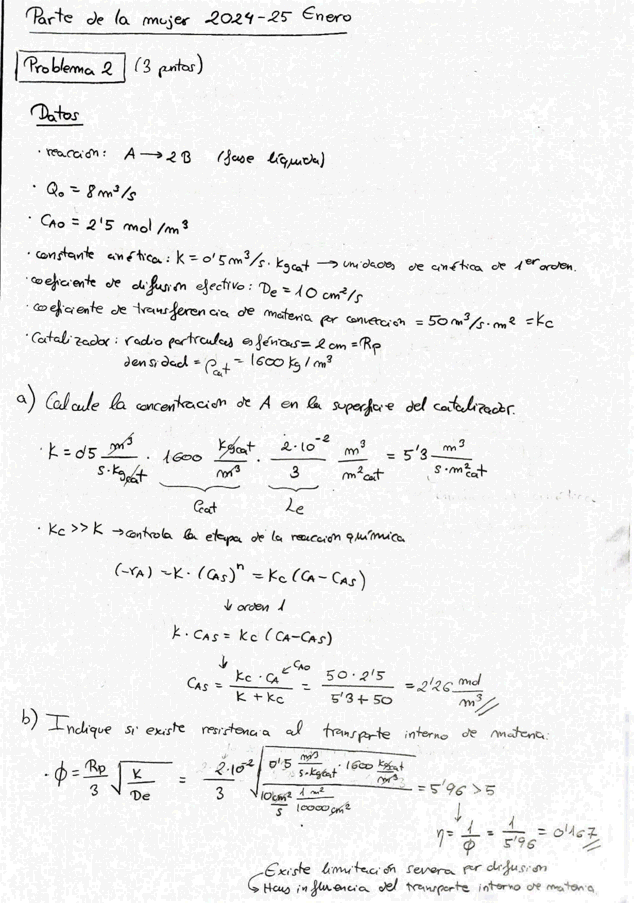 Parte de la mujer 2024-25 Enero
Problema 2 (3 puntos)
Datos
· reacción: A → 2B (fase líquida)
· Q0 = 8 m³/s
· CA0 = 2'5 mol/m³
· constante cinética: K = 0'5 m³/s·kgcat → unidades de cinética de 1er orden.
· coeficiente de difusión efectivo: De = 10 cm²/s
· coeficiente de transferencia de materia por convección = 50 m³/s·m² = Kc
· Catalizador: radio partículas esféricas = 2 cm = Rp
densidad = ρcat = 1600 kg/m³
a) Calcule la concentración de A en la superficie del catalizador.
· K = 0'5 m³/s·kgcat · 1600 kgcat/m³ · 2·10⁻²/3 m³/m²cat = 5'3 m³/s·m²cat
ρcat Le
· Kc >> K → controla la etapa de la reacción química
(-rA) = K·(CAS)ⁿ = Kc (CA-CAS)
↓ orden 1
K·CAS = Kc (CA-CAS)
↓
CAS = Kc·CA/K+Kc ← CA0 = 50·2'5/5'3+50 = 2'26 mol/m³
b) Indique si existe resistencia al transporte interno de materia:
· ϕ = Rp/3 √K/De = 2·10⁻²/3 √0'5 m³/s·kgcat · 1600 kgcat/m³ / 10 cm²/s 1 m²/10000 cm² = 5'96 > 5
↓
η = 1/ϕ = 1/5'96 = 0'167
Existe limitación severa por difusión
↳ Hay influencia del transporte interno de materia.